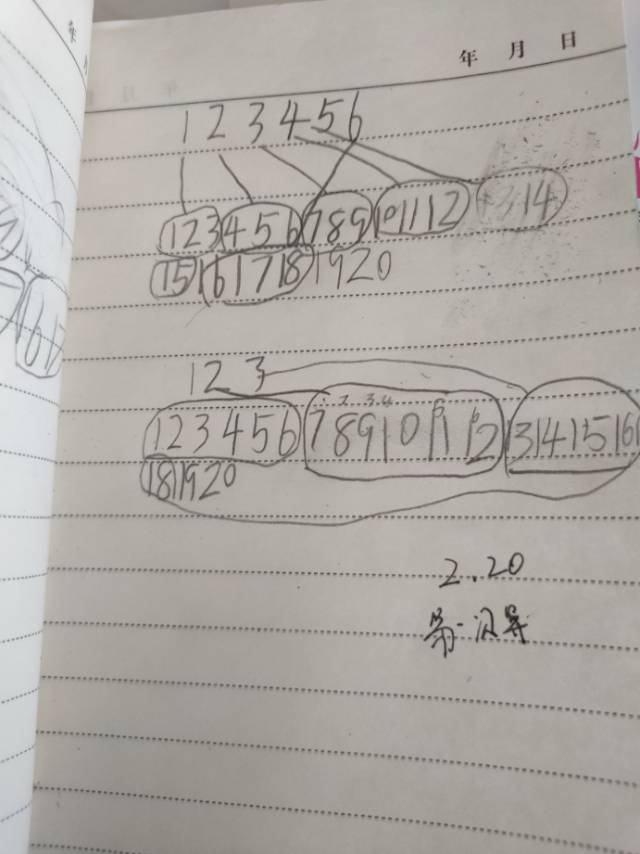 年 月 日
1 2 3 4 5 6
1 2 3 4 5 6 7 8 9 10 11 12 13 14
15 16 17 18 19 20
1 2 3
2 3 4 5 6
1 2 3 4 5 6 7 8 9 10 11 12 13 14 15 16
18 19 20
2.20
第一次